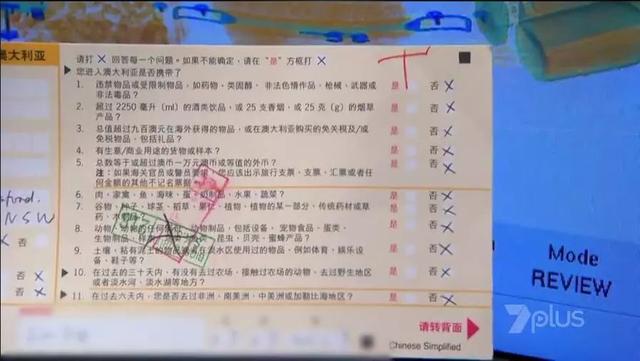 澳大利亚
请打 X 回答每一个问题。如果不能确定，请在“是”方框打 X
您进入澳大利亚是否携带了
1. 违禁物品或受限制物品，如药物、类固醇、非法色情作品、枪械、武器或 是 否 X
非法毒品？
2. 超过 2250 毫升（ml）的酒类饮品，或 25 支香烟，或 25 克（g）的烟草 是 否 X
产品？
3. 总值超过九百澳元在海外获得的物品，或在澳大利亚购买的免关税及/或 是 否 X
免税物品，包括礼品？
4. 有生意/商业用途的货物或样本？ 是 否 X
5. 总数等于或超过澳币一万元澳币或等值的外币？ 是 否 X
注：如果海关官员或警员要求，您应该出示旅行支票、支票、汇票或者任
何金额的其他不记名票据
6. 肉、家禽、鱼、海味、蛋、奶制品、水果、蔬菜？ 是 否 X
7. 谷物、种子、球茎、稻草、果仁、植物、植物的某一部分、传统药材或草 是 否 X
药、木
8. 动物、动物的任何 动物制品，包括设备、宠物食品、蛋类、 是 否 X
生物制品、 昆虫、贝壳、蜜蜂产品？
9. 土壤、粘有泥土的物品或在淡水区使用过的物品，例如体育、娱乐设 是 否 X
备、鞋子等？
10. 在过去的三十天内，有没有去过农场、接触过农场的动物、去过野生地区 是 否 X
或者淡水河、淡水湖等地方？
11. 在过去六天内，您是否去过非洲、南美洲、中美洲或加勒比海地区？ 是 否 X
NSW
否 X
否 X
请转背面
Chinese Simplified
Mode
REVIEW
7plus